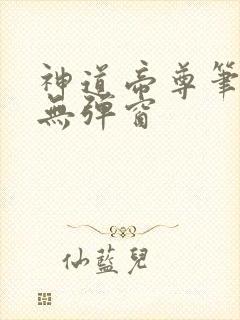 神道帝尊筆
無彈窗
仙藍兒